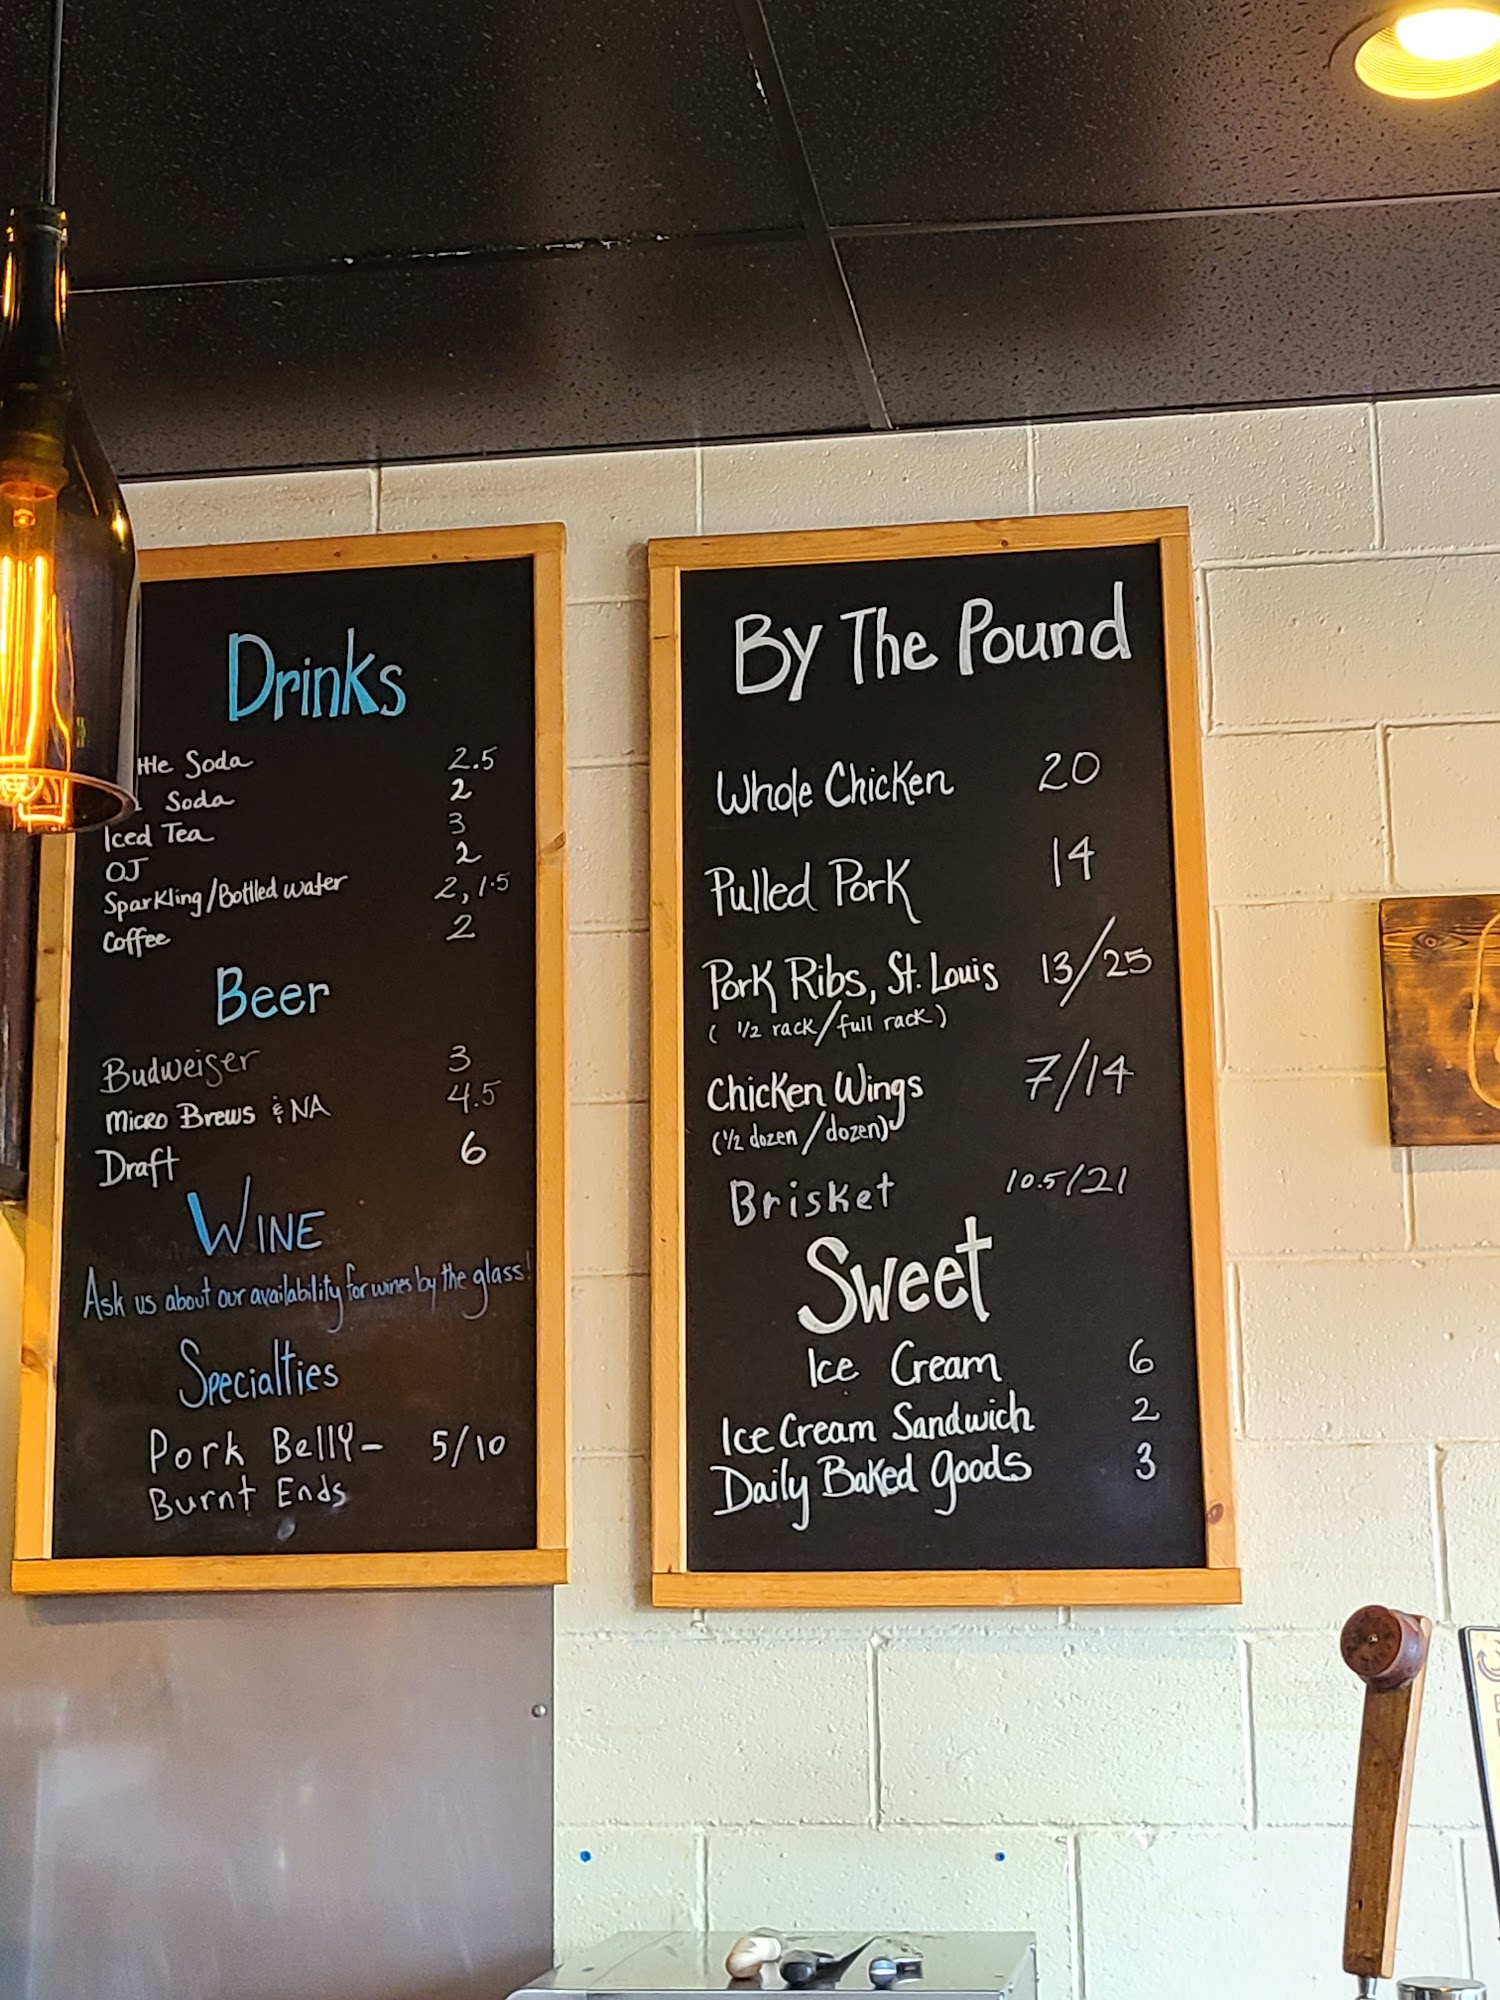 Drinks
ttle Soda 2.5
Soda 2
Iced Tea 3
OJ 2
Sparkling/Bottled water 2, 1.5
Coffee 2
Beer
Budweiser 3
Micro Brews & NA 4.5
Draft 6
WINE
Ask us about our availability for wines by the glass!
Specialties
Pork Belly- 5/10
Burnt Ends
By The Pound
Whole Chicken 20
Pulled Pork 14
Pork Ribs, St. Louis 13/25
( 1/2 rack/full rack )
Chicken Wings 7/14
(1/2 dozen/dozen)
Brisket 10.5/21
Sweet
Ice Cream 6
Ice Cream Sandwich 2
Daily Baked Goods 3